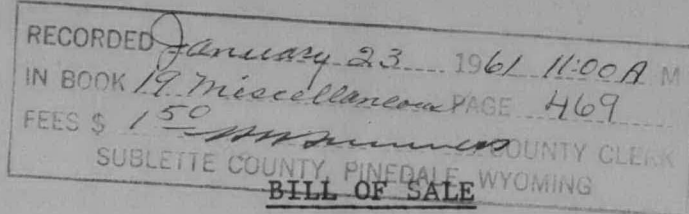 RECORDED January 23 1961 11:00 A M
IN BOOK 19 Miscellaneous PAGE 469
FEES $ 1 50 COUNTY CLERK
SUBLETTE COUNTY, PINEDALE, WYOMING
BILL OF SALE